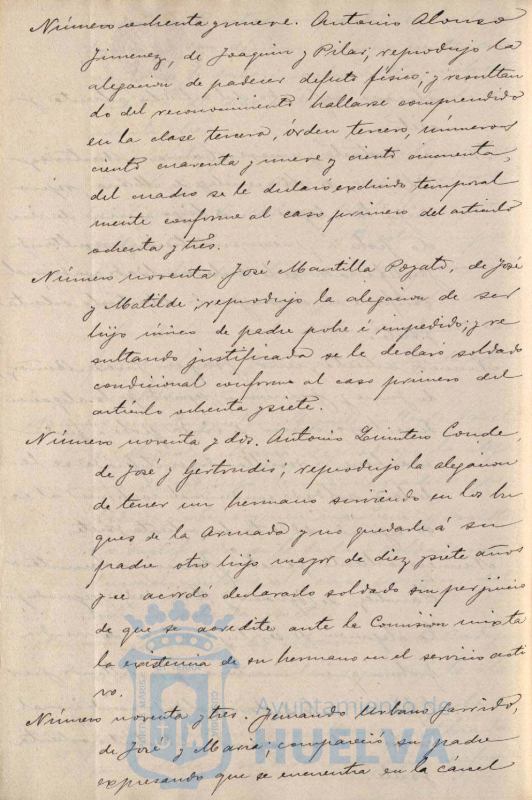 Número ochenta y nueve. Antonio Alonso
Jimenez, de Joaquin y Pilar; reprodujo la
alegacion de padecer defecto fisico; y resultan
do del reconocimiento hallarse comprendido
en la clase tercera, órden tercero, números
ciento cuarenta y nueve y ciento cincuenta,
del cuadro se le declaró excluido temporal
mente conforme al caso primero del artículo
ochenta y tres.
Número noventa José Mantilla Pozato, de José
y Matilde; reprodujo la alegacion de ser
hijo único de padre pobre é impedido; y re
sultando justificada se le declaró soldado
condicional conforme al caso primero del
artículo ochenta y siete.
Número noventa y dos. Antonio Quintero Conde,
de José y Gertrudis; reprodujo la alegacion
de tener un hermano sirviendo en los bu
ques de la Armada y no quedarle á su
padre otro hijo mayor de diez y siete años
y se acordó declararlo soldado sin perjuicio
de que se acredite ante la Comision mixta
la existencia de su hermano en el servicio acti
vo.
Número noventa y tres. Fernando Urbano Garrido,
de José y Maria; compareció su padre
expresando que se encuentra en la cárcel
Ayuntamiento de
HUELVA